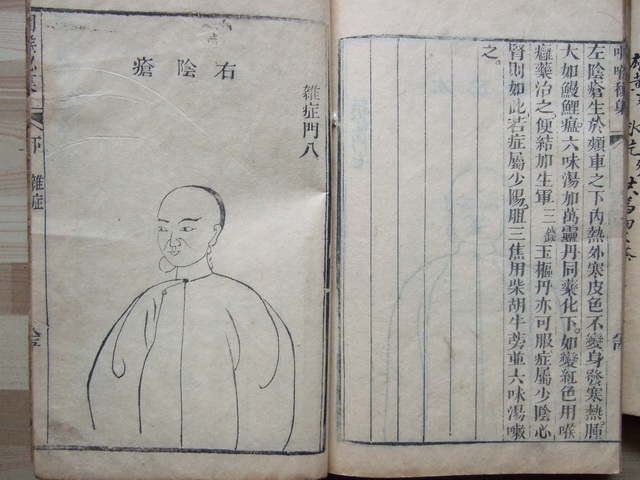 左陰瘡生於頰車之下內熱外寒皮色不變身發寒熱腫
大如鰻鯉瘟。六味湯加萬靈丹同藥化下。如變紅色用喉
癰藥治之。便結加生軍三錢玉樞丹亦可服症屬少陰心
腎則如此若症屬少陽胆三焦用柴胡牛蒡並六味湯漱
之。
雜症門八
右陰瘡
下
雜症